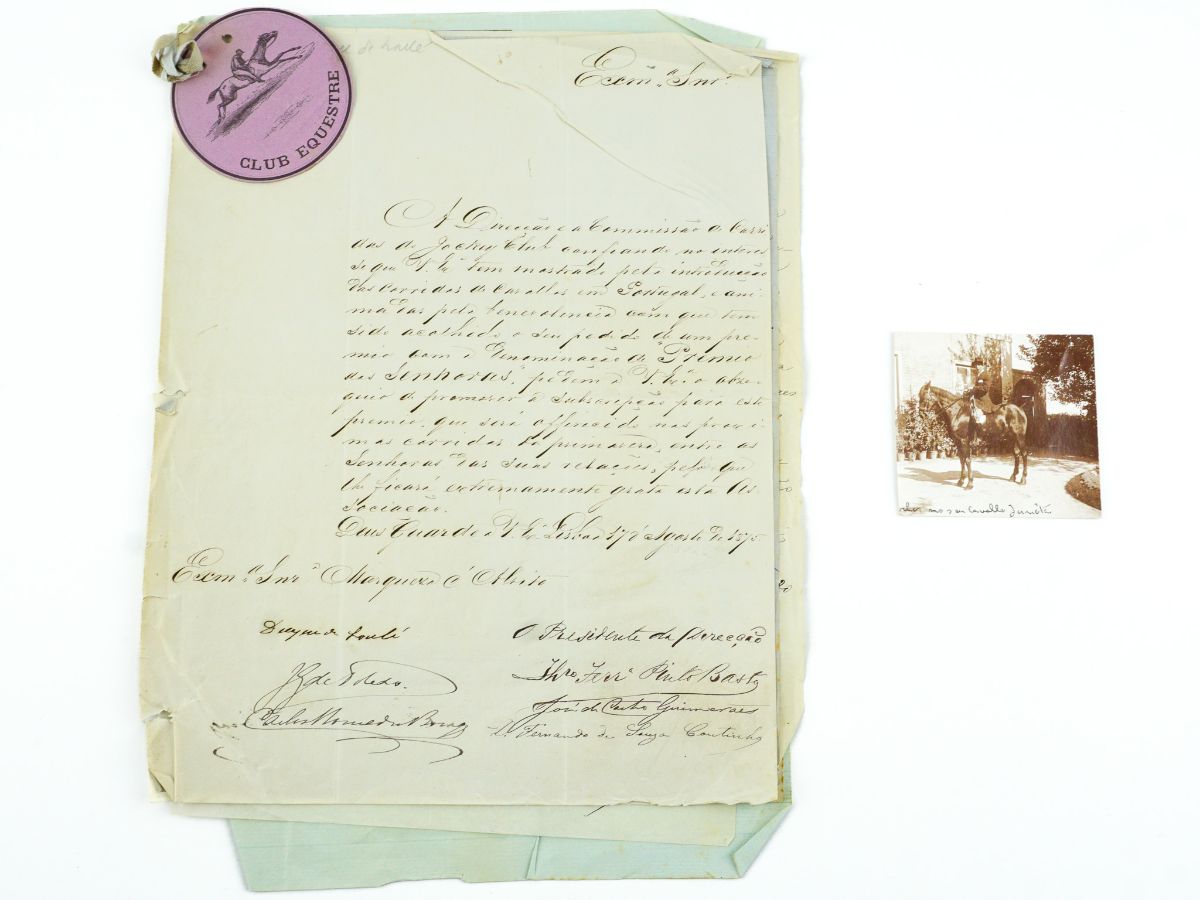 CLUB EQUESTRE
de Loulé
Exm.ª Snr.ª
A Direcção e a Commissão de Corri
das do Jockey Club confiando no interes
se que V. Ex.ª tem mostrado pela introducção
das corridas de Cavallos em Portugal, e ani-
madas pela benevolencia com que tem
sido acolhido o seu pedido de um pre-
mio com a denominação de "Premio
das Senhoras", pedem a V. Ex.ª o obse-
quio de promover a subscripção para este
premio, que será offerecido nas proxi-
mas corridas da primavera, entre as
Senhoras das suas relações, pelo que
lhe ficará extremamente grata esta As
sociação.
Deus Guarde a V. Ex.ª Lisboa 17 d'Agosto de 1875
Exm.ª Snr.ª Marqueza d'Alvito
Duque de Loulé
O Presidente da Direcção
de Toledo.
Thro. Ferr.ª Pinto Basto
Carlos
José de Castro Guimarães
D. Fernando de Souza Coutinho
no seu Cavallo